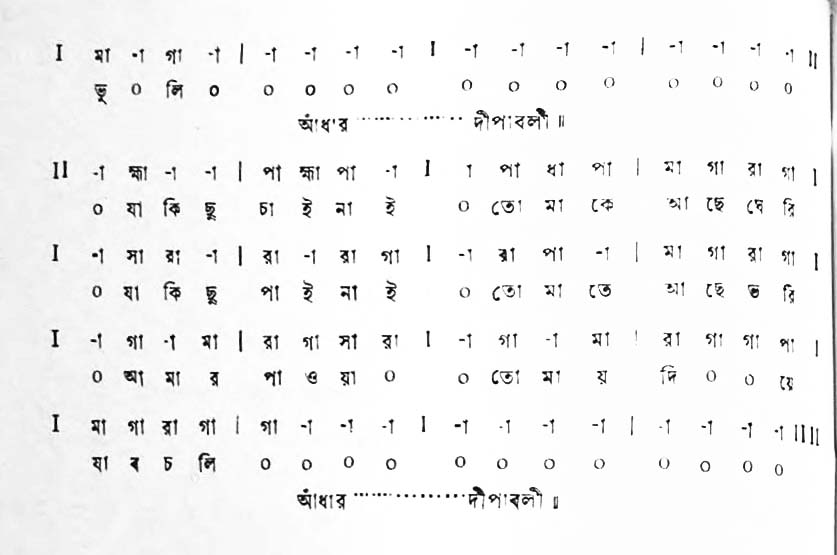 I মা -া গা -া | -া -া -া -া I -া -া -া -া | -া -া -া -া II
ভূ ০ লি ০ ০ ০ ০ ০ ০ ০ ০ ০ ০ ০ ০ ০
আঁধার ................ দীপাবলী ॥
II -া হ্মা -া -া | পা হ্মা পা -া I া পা ধা পা | মা গা রা গা I
০ যা কি ছু চা ই না ই ০ তো মা কে আ ছে ঘে রি
I -া সা রা -া | রা -া রা গা I -া রা পা -া | মা গা রা গা I
০ যা কি ছু পা ই না ই ০ তো মা তে আ ছে ভ রি
I -া গা -া মা | রা গা সা রা I -া গা -া মা | রা গা গা পা I
০ আ মা র পা ও য়া ০ ০ তো মা য় দি ০ ০ য়ে
I মা গা রা গা | গা -া -া -া I -া -া -া -া | -া -া -া -া IIII
যা ব চ লি ০ ০ ০ ০ ০ ০ ০ ০ ০ ০ ০ ০
আঁধার ................ দীপাবলী ॥